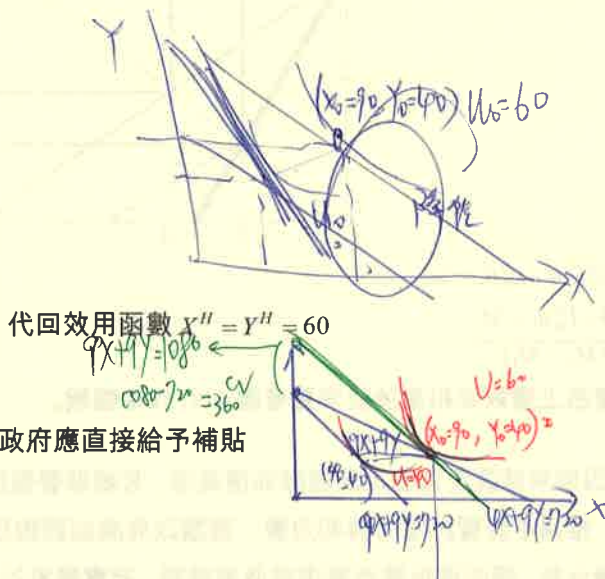 Y
(X₀=90, Y₀=40) U₀=60
X
代回效用函數 X^H = Y^H = 60
9X+9Y=1080
1080-720=360 CV
政府應直接給予補貼
U=60
(X₀=90, Y₀=40)
9X+9Y
(40,40)
U=40
9X+9Y=720
4X+9Y=720
X